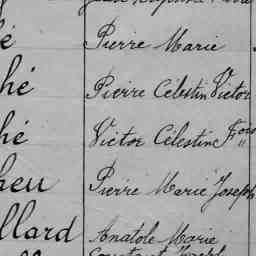 é Pierre Marie
hé Pierre Célestin Victor
hé Victor Célestin Fois
"
heu Pierre Marie Joseph
llard Anatole Marie